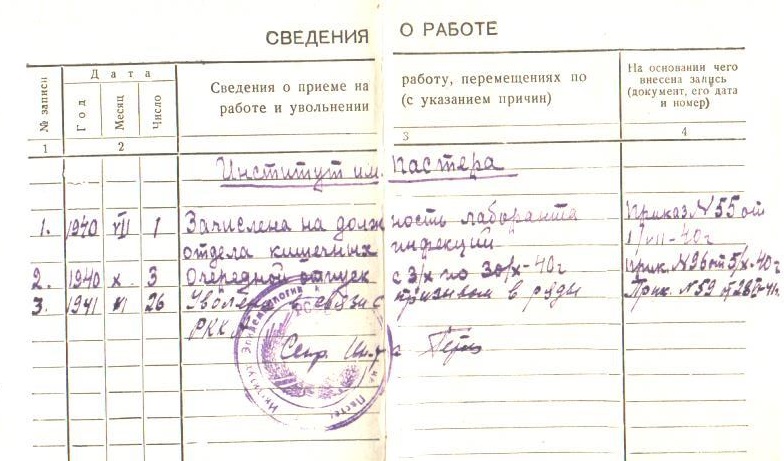 СВЕДЕНИЯ О РАБОТЕ
№ записи
Дата
Год
Месяц
Число
Сведения о приеме на работу, перемещениях по
работе и увольнении (с указанием причин)
На основании чего
внесена запись
(документ, его дата
и номер)
1 2 3 4
Институт им. Пастера
1. 1940 VII 1 Зачислена на должность лаборанта Приказ N 55 от
отдела кишечных инфекций 1/VII-40г
2. 1940 X 3 Очередной отпуск с 3/X по 30/X-40г Прик. N 96 от 5/X-40г
3. 1941 VI 26 Уволена в связи с призывом в ряды Прик. N 59
РККА
Секр. Ин-та